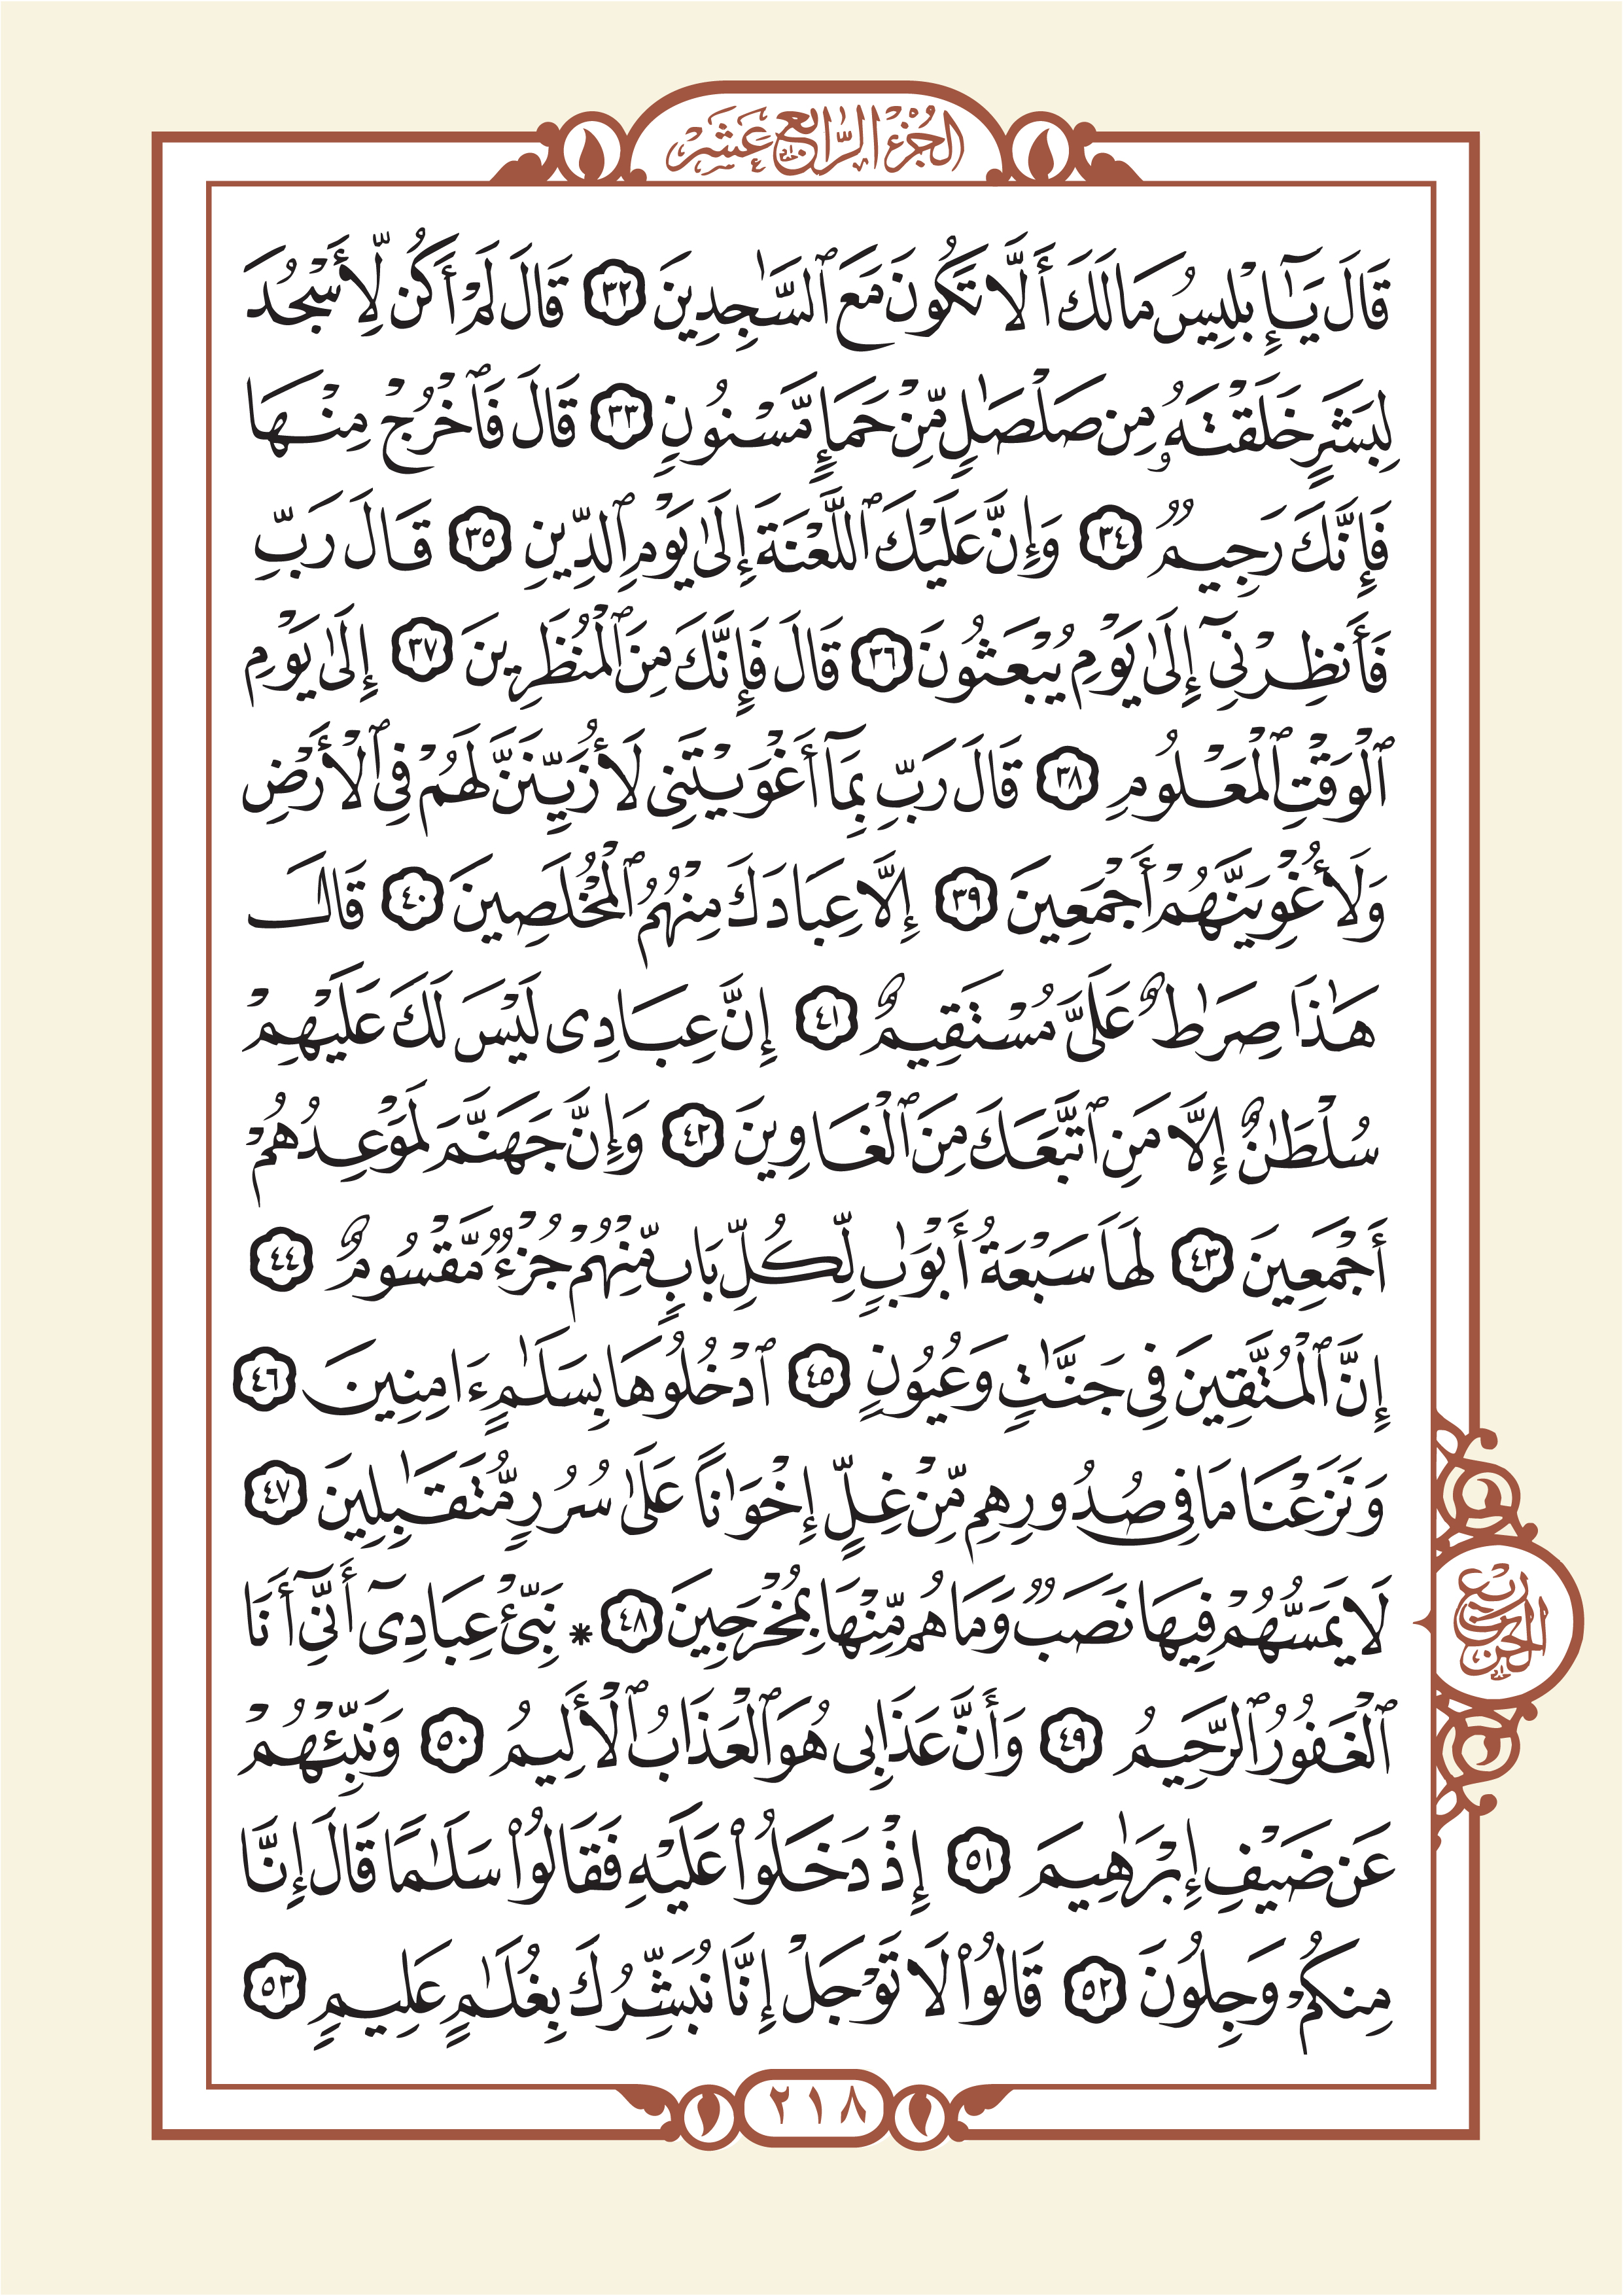 الجزء الرابع عشر
قَالَ يَٰٓإِبْلِيسُ مَا لَكَ أَلَّا تَكُونَ مَعَ ٱلسَّٰجِدِينَ ٣٢ قَالَ لَمْ أَكُن لِّأَسْجُدَ
لِبَشَرٍ خَلَقْتَهُۥ مِن صَلْصَٰلٍ مِّنْ حَمَإٍ مَّسْنُونٍ ٣٣ قَالَ فَٱخْرُجْ مِنْهَا
فَإِنَّكَ رَجِيمٌ ٣٤ وَإِنَّ عَلَيْكَ ٱللَّعْنَةَ إِلَىٰ يَوْمِ ٱلدِّينِ ٣٥ قَالَ رَبِّ
فَأَنظِرْنِىٓ إِلَىٰ يَوْمِ يُبْعَثُونَ ٣٦ قَالَ فَإِنَّكَ مِنَ ٱلْمُنظَرِينَ ٣٧ إِلَىٰ يَوْمِ
ٱلْوَقْتِ ٱلْمَعْلُومِ ٣٨ قَالَ رَبِّ بِمَآ أَغْوَيْتَنِى لَأُزَيِّنَنَّ لَهُمْ فِى ٱلْأَرْضِ
وَلَأُغْوِيَنَّهُمْ أَجْمَعِينَ ٣٩ إِلَّا عِبَادَكَ مِنْهُمُ ٱلْمُخْلَصِينَ ٤٠ قَالَ
هَٰذَا صِرَٰطٌ عَلَىَّ مُسْتَقِيمٌ ٤١ إِنَّ عِبَادِى لَيْسَ لَكَ عَلَيْهِمْ
سُلْطَٰنٌ إِلَّا مَنِ ٱتَّبَعَكَ مِنَ ٱلْغَاوِينَ ٤٢ وَإِنَّ جَهَنَّمَ لَمَوْعِدُهُمْ
أَجْمَعِينَ ٤٣ لَهَا سَبْعَةُ أَبْوَٰبٍ لِّكُلِّ بَابٍ مِّنْهُمْ جُزْءٌ مَّقْسُومٌ ٤٤
إِنَّ ٱلْمُتَّقِينَ فِى جَنَّٰتٍ وَعُيُونٍ ٤٥ ٱدْخُلُوهَا بِسَلَٰمٍ ءَامِنِينَ ٤٦
وَنَزَعْنَا مَا فِى صُدُورِهِم مِّنْ غِلٍّ إِخْوَٰنًا عَلَىٰ سُرُرٍ مُّتَقَٰبِلِينَ ٤٧
لَا يَمَسُّهُمْ فِيهَا نَصَبٌ وَمَا هُم مِّنْهَا بِمُخْرَجِينَ ٤٨ * نَبِّئْ عِبَادِىٓ أَنِّىٓ أَنَا
ٱلْغَفُورُ ٱلرَّحِيمُ ٤٩ وَأَنَّ عَذَابِى هُوَ ٱلْعَذَابُ ٱلْأَلِيمُ ٥٠ وَنَبِّئْهُمْ
عَن ضَيْفِ إِبْرَٰهِيمَ ٥١ إِذْ دَخَلُوا۟ عَلَيْهِ فَقَالُوا۟ سَلَٰمًا قَالَ إِنَّا
مِنكُمْ وَجِلُونَ ٥٢ قَالُوا۟ لَا تَوْجَلْ إِنَّا نُبَشِّرُكَ بِغُلَٰمٍ عَلِيمٍ ٥٣
ربع الحزب
٢١٨